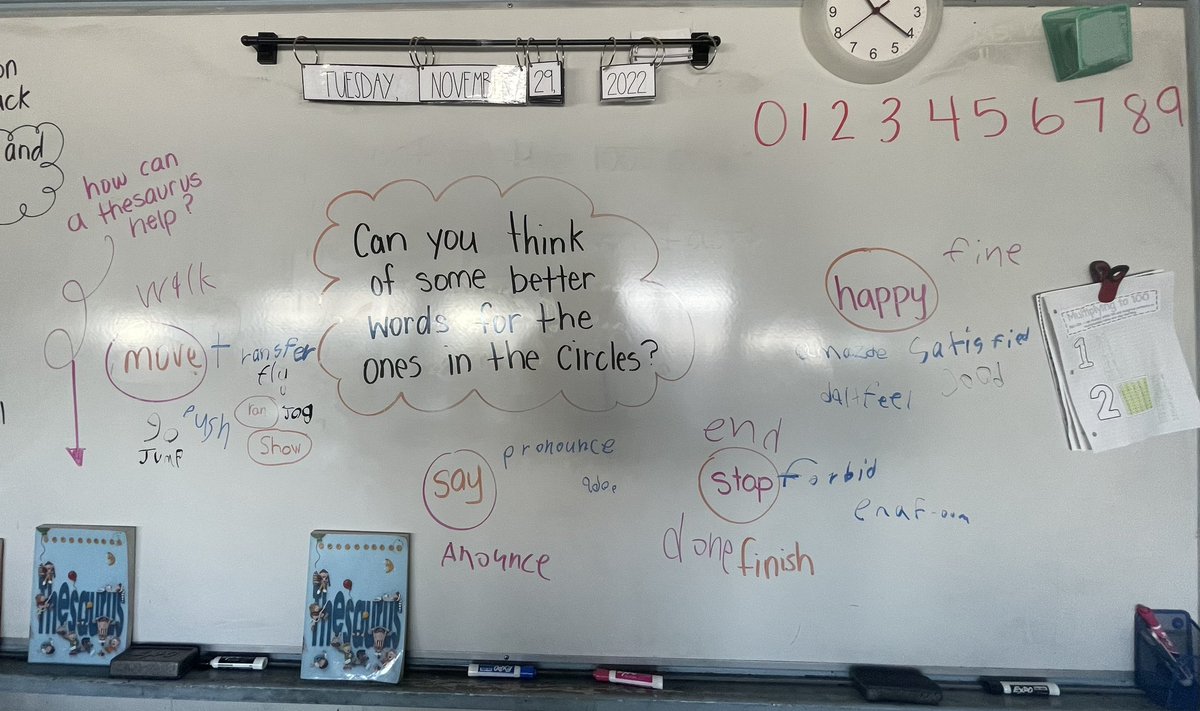 on
ack
and
TUESDAY, NOVEMB 29, 2022
9 3
8 4
7 6 5
0 1 2 3 4 5 6 7 8 9
how can
a thesaurus
help?
Can you think
of some better
words for the
ones in the circles?
walk
move
transfer
fly
go
push
ran
Jog
Jump
Show
happy
fine
Satisfied
good
say
pronounce
Anounce
end
stop
forbid
done
finish
Multiplying to 100
1
2
thesaurus
thesaurus
EXPO